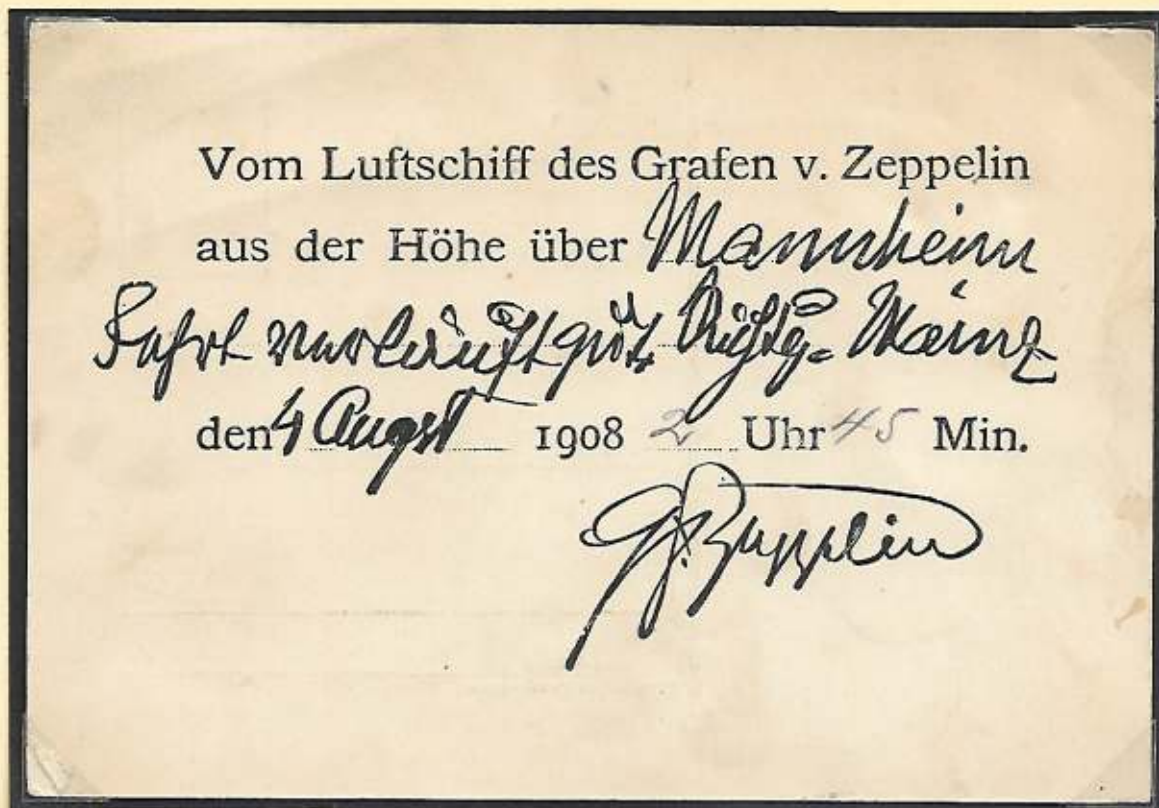 Vom Luftschiff des Grafen v. Zeppelin
aus der Höhe über Mannheim
Fahrt verläuft gut. Richtg. Mainz
den 4 Augst 1908 2 Uhr 45 Min.
Gf. Zeppelin